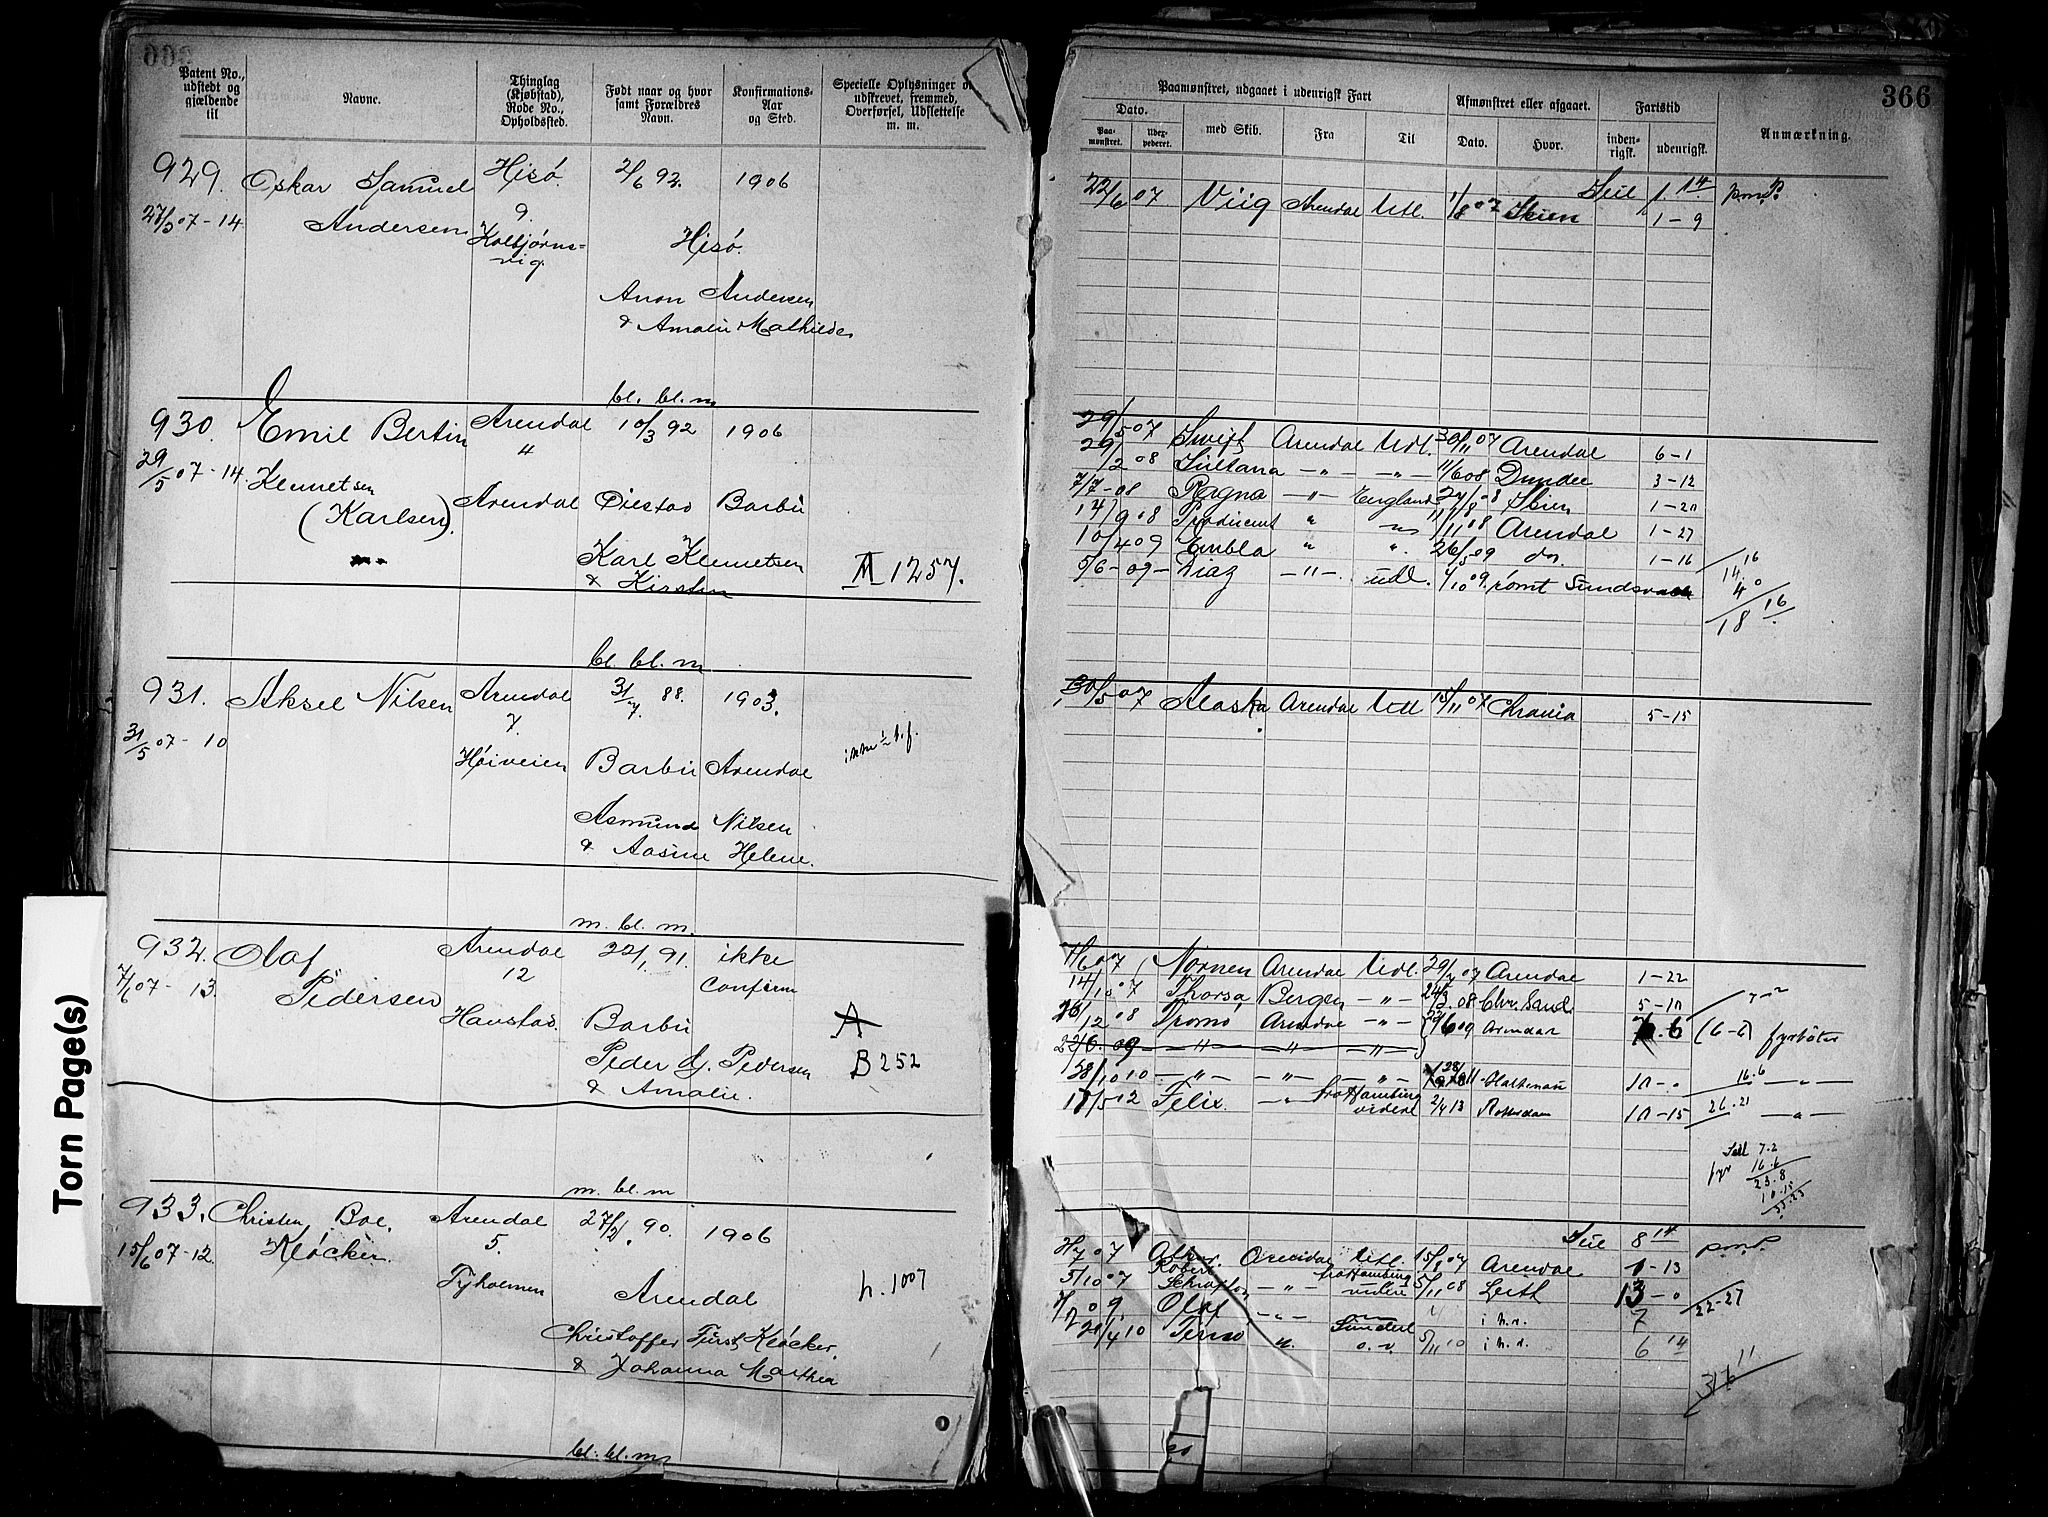 366
Patent No., udstedt og gjældende til
Navne.
Thinglag (Kjøbstad), Rode No., Opholdssted.
Født naar og hvor samt Forældres Navn.
Konfirmations-Aar og Sted.
Specielle Oplysninger om udskrevet, fremmed, Overførsel, Udslettelse m. m.
Paamønstret, udgaaet i udenrigsk Fart
Afmønstret eller afgaaet.
Fartstid
Anmærkning.
Dato.
Paamønstret.
Udexpederet.
med Skib.
Fra
Til
Dato.
Hvor.
indenrigsk.
udenrigsk.
929. Oskar Samuel Hisø 2/6 92. 1906
27/5 07-14 Andersen 9. Hisø.
Kolbjørnsvig.
Anon Andersen
& Amalie Mathilde
bl. bl. m
Seil 1.14
22/6 07 Viig Arendal Udl. 1/8 07 Skien 1-9
930. Emil Bertin Arendal 10/3 92 1906
29/5 07-14. Kennetsen 4
(Karlsen). Arendal Øiestad Barbu
Karl Kennetsen
& Kirsten
M 1257.
bl. bl. m
29/5 07 Swift Arendal Udl. 30/11 07 Arendal 6-1
29/2 08 Sultana -"- -"- 11/6 08 Dundee 3-12
7/7-08 Ragna -"- England Skien
14/9 08 Producent " " 11/11 08 Arendal 1-27
10/4 09 Embla " ". 26/5 09 do. 1-16
5/6-09- -"- udl. 4/10 09. rømt Sundsvall
16
14.
4 0
18 16
931. Aksel Nilsen Arendal 31/7. 88. 1903.
31/5 07-10 7.
Høiveien Barbu Arendal
Asmund Nilsen
& Aasine Helene.
m. bl. m.
30/5 07 Alaska Arendal Udl 15/11 07 Chrania 5-15
932. Olaf Arendal 22/1. 91. ikke
7/6 07-13. Pedersen 12 conferm
Havstad. Barbu
Peder G. Pedersen
& Amalie.
A
B 252
m. bl. m
7/6 07 Nornen Arendal Udl. 29/7 07 Arendal 1-22
14/10 07 Thorsa Bergen -"- 24/3 08 Chr. Sand
12 08 Tromø Arendal -"- 29/6 09 Arendal
(6-6) fyrbøter
-"- -"- -"-
28/10 10 -"- -"- -"-
16.6 -"-
Felix. -"- fra Hamburg videre 2/4 13 Rotterdam 10-15
26.21 -"-
Seil 7.2
fyr 16.6
23.8
10.15
933. Christen Boe. Arendal 27/2. 90. 1906
15/6 07-12. Kløcker 5.
Tyholmen Arendal
Christoffer Fürst Kløcker.
& Johanna Marthea
h. 1007
bl. bl. m
Seil 8 14
07 Arendal Udl. 15/8 07 Arendal 1-13
5/10 07 Robert -"- fra Hamburg videre 5/11 08 Leith 13-0
22-27
7/2 09. Olaf -"- " 7
4 10 5/11 10 6 14
11
Torn Page(s)